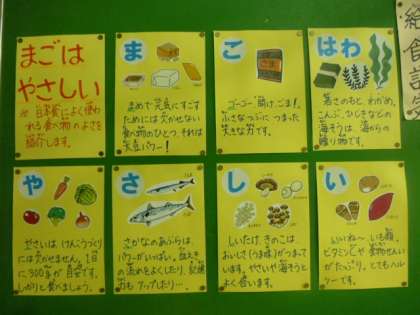 まごは
やさしい
※ 日本食によく使わ
れる食べ物のよさを
紹介します。
ま
まめで元気にすごす
ためには欠かせない
食べ物のひとつ。それは
大豆パワー!
こ
ごま
ゴーゴー開け、ごま!
小さなつぶに つまった
大きな力です。
はわ
若さのもと わかめ、
こんぶ、ひじきなどの
海そうは、海からの
贈り物です。
や
やさいは けんこうづくり
には欠かせません。1日
に300gが目安です。
しっかりと食べましょう。
さ
さかなのあぶらは、
パワーがいっぱい。血えき
の流れをよくしたり、記憶
力も アップしたり…。
し
しいたけ、きのこは、
おいしさ(うま味)がつまって
います。やさいや海そうと
よく合います。
い
いいね〜 いも類。
ビタミンCや 食物せんい
がたっぷり。とてもヘル
シーです。
給食